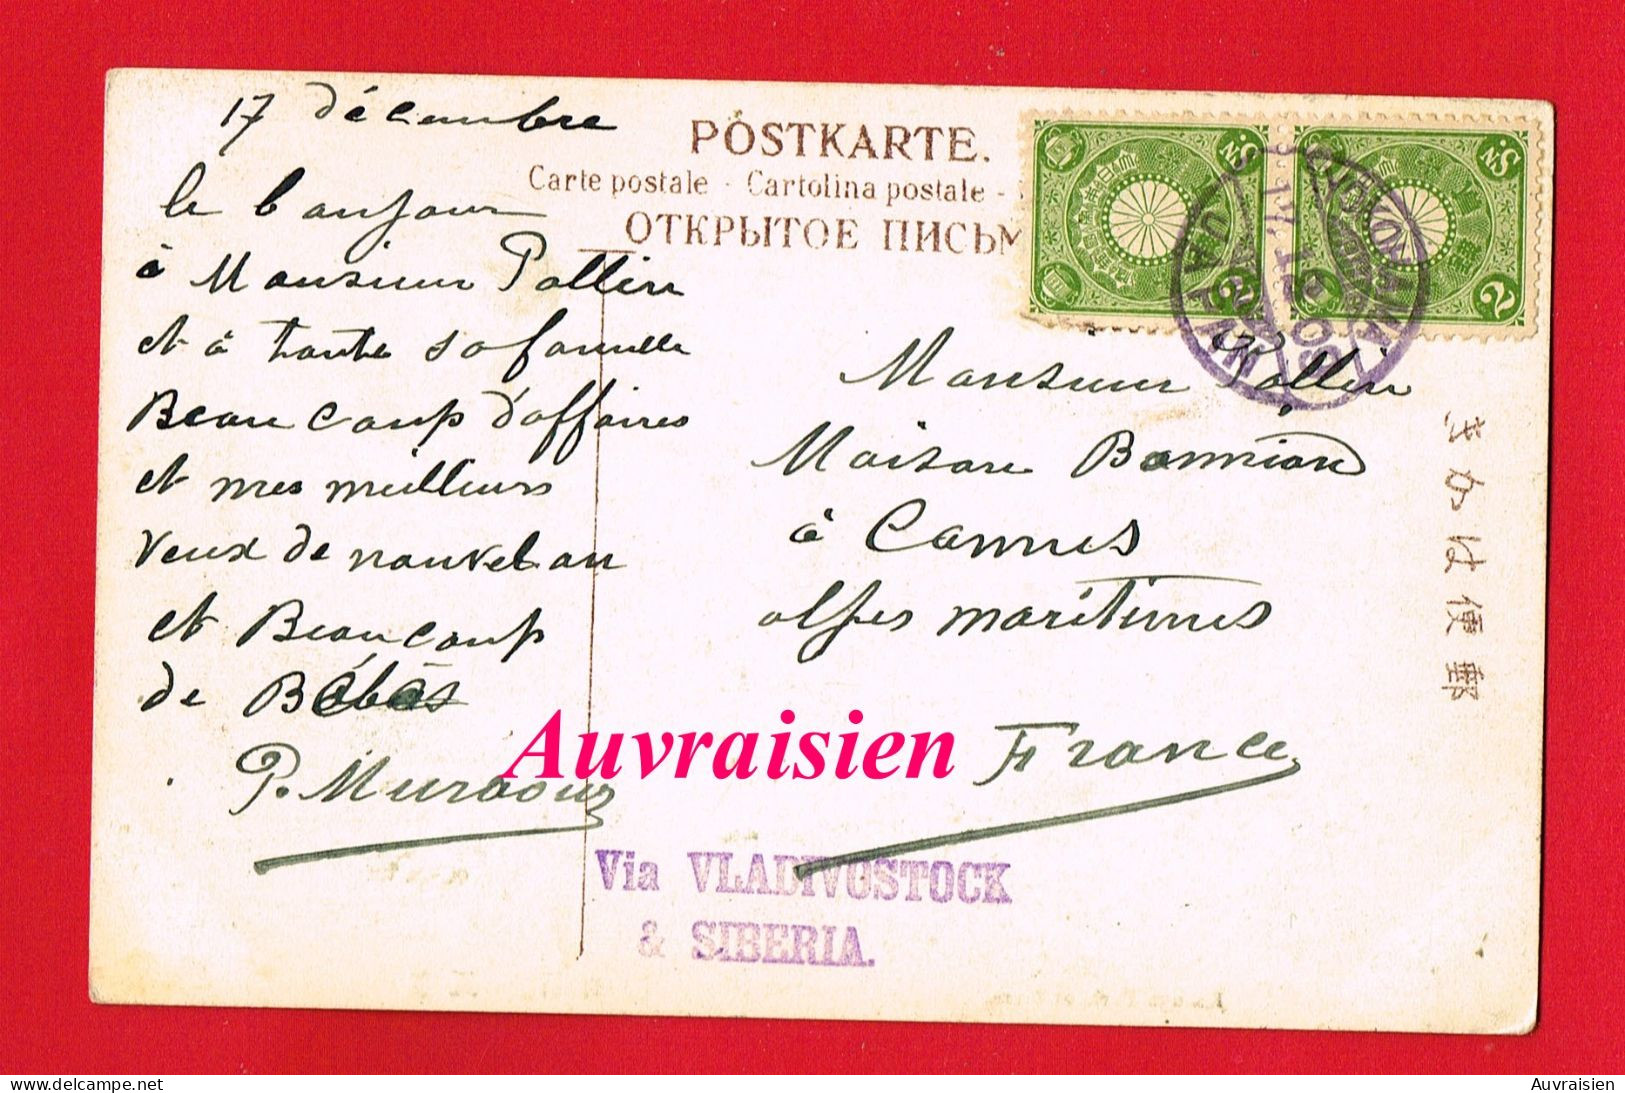 17 décembre
le bonjour
à Monsieur Pollin
et à toute sa famille
Beaucoup d'affaires
et mes meilleurs
veux de nouvel an
et Beaucoup
de Bébés
P. Muraour
POSTKARTE.
Carte postale - Cartolina postale -
ОТКРЫТОЕ ПИСЬМ
2 Sn.
2 Sn.
YOKOHAMA
JAPAN
17.12.08
Monsieur Pollin
Maison
à Cannes
alpes maritimes
France
郵便はかき
Via VLADIVOSTOCK
& SIBERIA.
Auvraisien
delcampe.net
Auvraisien